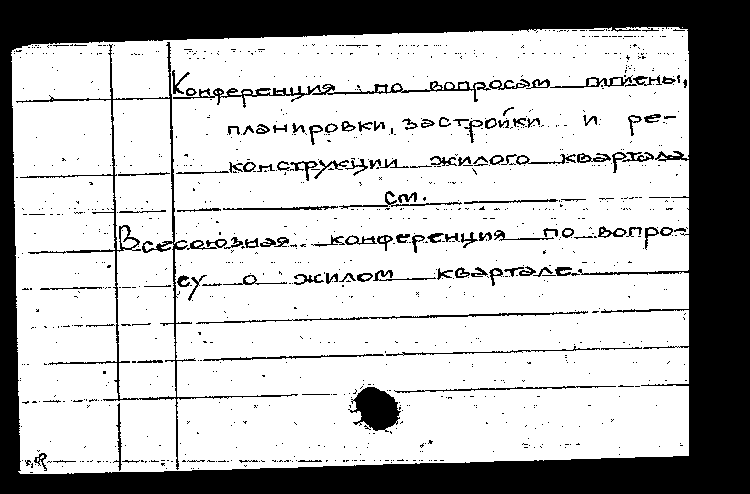 Конференция по вопросам гигиены,
планировки, застройки и ре-
конструкции жилого квартала
см.
Всесоюзная конференция по вопро-
су о жилом квартале.